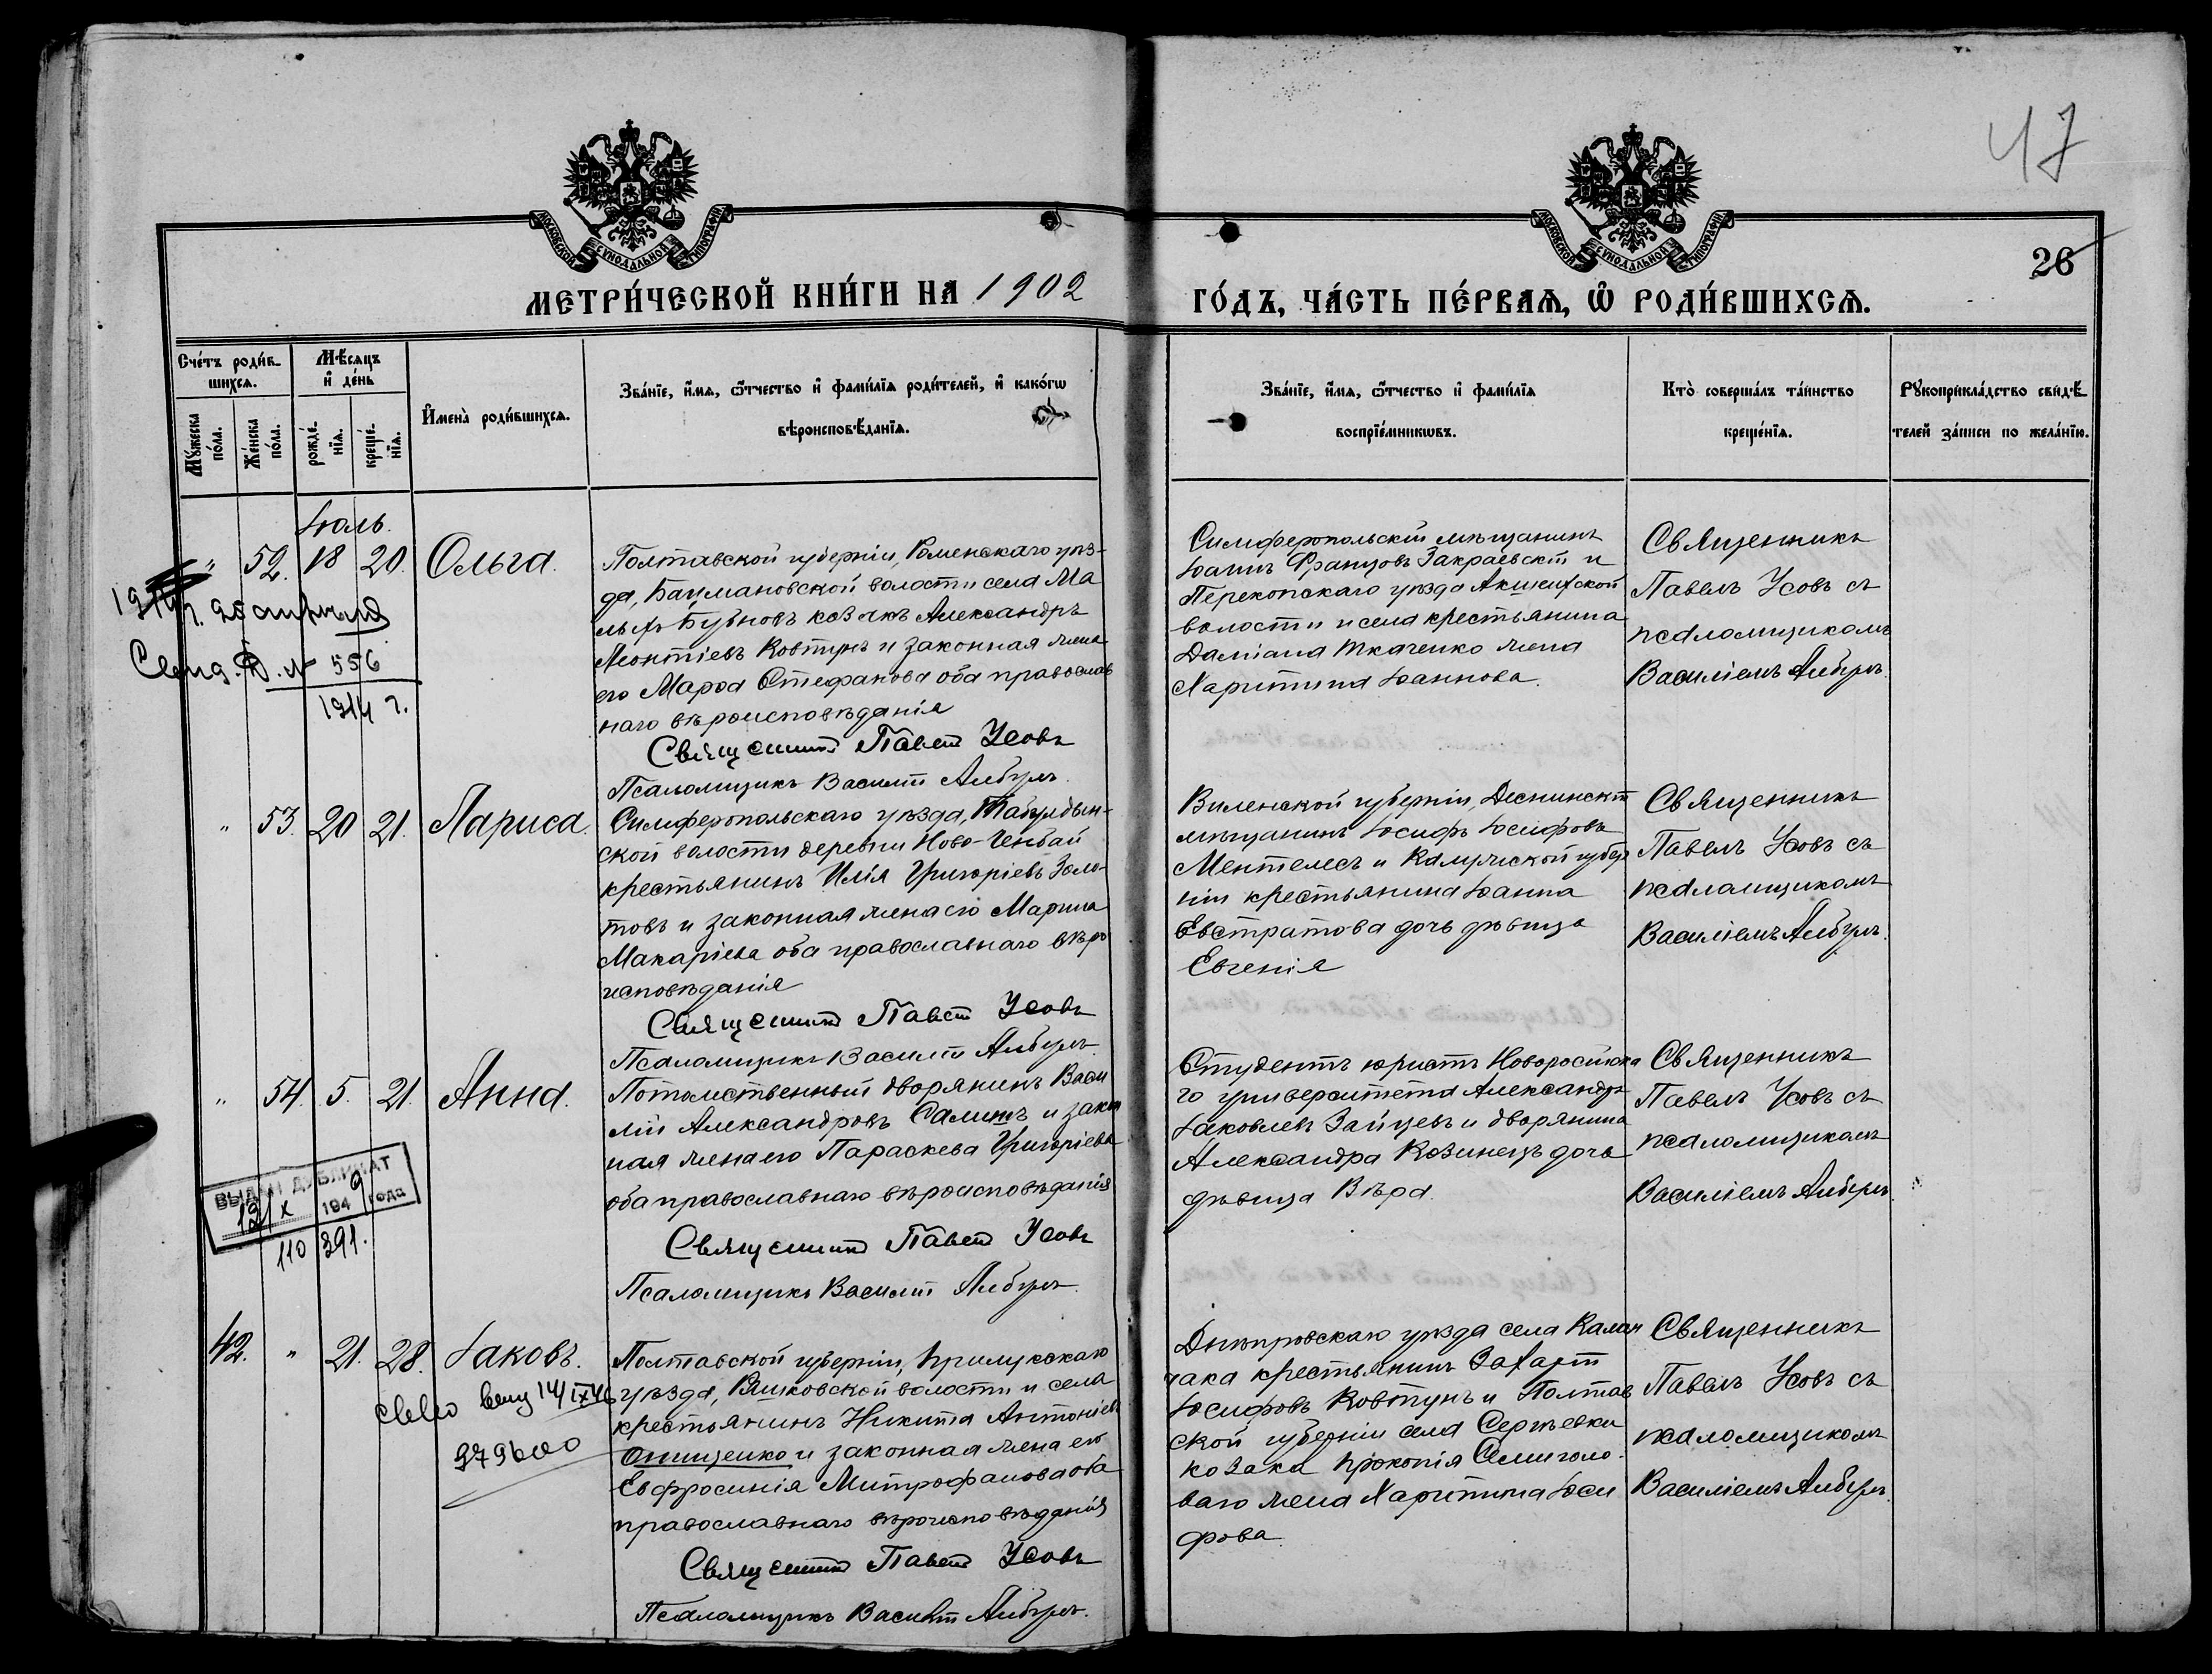 47
26
МОСКОВСКОЙ СѴНОДАЛЬНОЙ ТИПОГРАФІИ
МОСКОВСКОЙ СѴНОДАЛЬНОЙ ТИПОГРАФІИ
МЕТРИ́ЧЕСКОЙ КНИ́ГИ НА 1902 ГО́ДЪ, ЧА́СТЬ ПЕ́РВАѦ, Ѡ҆ РОДИ́ВШИХСѦ.
Сче́тъ роди́в-
шихсѧ.
Мꙋ́жеска по́ла.
Же́нска по́ла.
Мѣ́сѧцъ
и҆ де́нь
рожде́-
нїѧ.
креще́-
нїѧ.
И҆мена̀ роди́вшихсѧ.
Зва́нїе, и҆́мѧ, ѻ҆́тчество и҆ фами́лїѧ роди́телей, и҆ какѡ́гѡ
вѣроисповѣ́данїѧ.
Зва́нїе, и҆́мѧ, ѻ҆́тчество и҆ фами́лїѧ
воспрїе́мникѡвъ.
Кто̀ соверша́лъ та́инство
креще́нїѧ.
Рꙋкоприкла́дство свидѣ́-
телей за́писи по жела́нїю.
Іюль.
" 52. 18 20. Ольга.
Полтавской губерніи, Роменскаго уѣз-
да, Бацмановской волости села Ма
лыхъ Бубновъ козакъ Александръ
Леонтіевъ Ковтунъ и законная жена
его Марѳа Стефанова оба православ
наго вѣроисповѣданія
Священникъ Павелъ Усовъ
Псаломщикъ Василій
Симферопольскій мѣщанинъ
Іоаннъ Францовъ Закраевскій и
Перекопскаго уѣзда
волости и села крестьянина
Даміана Ткаченко жена
Харитина Іоаннова.
Священникъ
Павелъ Усовъ съ
псаломщикомъ
Василіемъ
20 апрѣля
№ 556
1914 г.
" 53. 20 21. Лариса.
Симферопольскаго уѣзда, Табулдын-
ской волости деревни Ново-Ченбай
крестьянинъ Илія Григоріевъ Золо-
товъ и законная жена его Марина
Макаріева оба православнаго вѣро
исповѣданія
Священникъ Павелъ Усовъ
Псаломщикъ Василій
Виленской губерніи, Деснинскій
мѣщанинъ Іосифъ Іосифовъ
Ментелесъ и Калужской губер
ніи крестьянина Іоанна
Евстратова дочь дѣвица
Евгенія
Священникъ
Павелъ Усовъ съ
псаломщикомъ
Василіемъ
" 54. 5. 21. Анна.
Потомственный дворянинъ Васи
лій Александровъ Салитъ и закон
ная жена его Параскева Григоріева
оба православнаго вѣроисповѣданія
Священникъ Павелъ Усовъ
Псаломщикъ Василій
Студентъ юристъ Новоросійска
го университета Александръ
Іаковлевъ Зайцевъ и дворянина
Александра Козинецъ дочь
дѣвица Вѣра.
Священникъ
Павелъ Усовъ съ
псаломщикомъ
Василіемъ
ВЫДАН ДУБЛИКАТ
12/X 1949 года
110 391.
42. " 21. 28. Іаковъ.
Полтавской губерніи, Прилукскаго
уѣзда, волости и села
крестьянинъ Никита Антоніевъ
Онищенко и законная жена его
Евфросинія Митрофанова оба
православнаго вѣроисповѣданія
Священникъ Павелъ Усовъ
Псаломщикъ Василій
Днѣпровскаго уѣзда села Калан
чака крестьянинъ Захарій
Іосифовъ Ковтунъ и Полтав
ской губерніи села Сергѣевки
козака Прокопія Семиголо-
ваго жена Харитина Іоси
фова.
Священникъ
Павелъ Усовъ съ
псаломщикомъ
Василіемъ